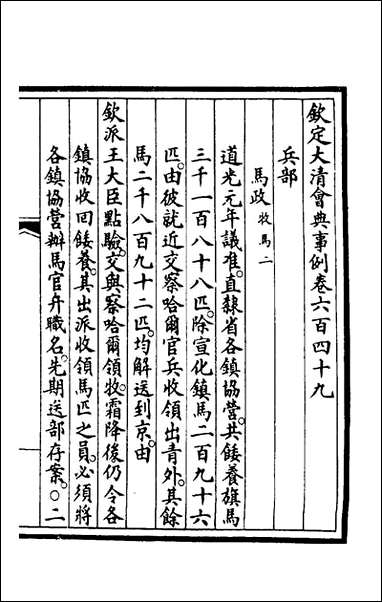 欽定大清會典事例卷六百四十九
兵部
馬政牧馬二
道光元年議准。直隸省各鎮協營。共餧養旗馬
三千一百八十八匹。除宣化鎮馬二百九十六
匹。由彼就近交察哈爾官兵收領出青外。其餘
馬二千八百九十二匹。均解送到京。由
欽派王大臣點驗。交與察哈爾領牧。霜降後仍令各
鎮協收回餧養。其出派收領馬匹之員。必須將
各鎮協營辦馬官弁職名。先期送部存案。○二